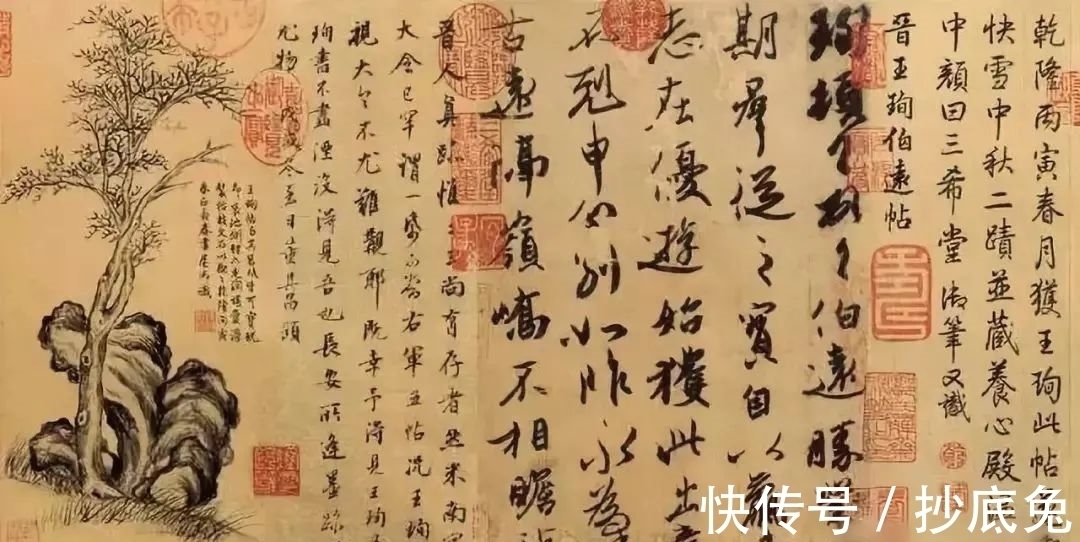 乾隆丙寅春月獲王珣此帖
快雪中秋二蹟並藏養心殿
中顏曰三希堂御筆又識
晉王珣伯遠帖
珣頓首頓首伯遠勝業
期群從之寶自以羸
志在優遊始獲此出意
不剋申分別如昨永為
古遠隔嶺嶠不相瞻臨
晉人真跡惟二王尚有存者然米南宮
大令已罕謂一紙可當右軍五帖況王珣
視大令不尤難覯耶既幸予得見王珣
珣書不盡湮沒得見吾也長安所逢墨跡
尤物 戊戌冬至日董其昌題
春正長春書屋御識
快传号 / 抄底兔